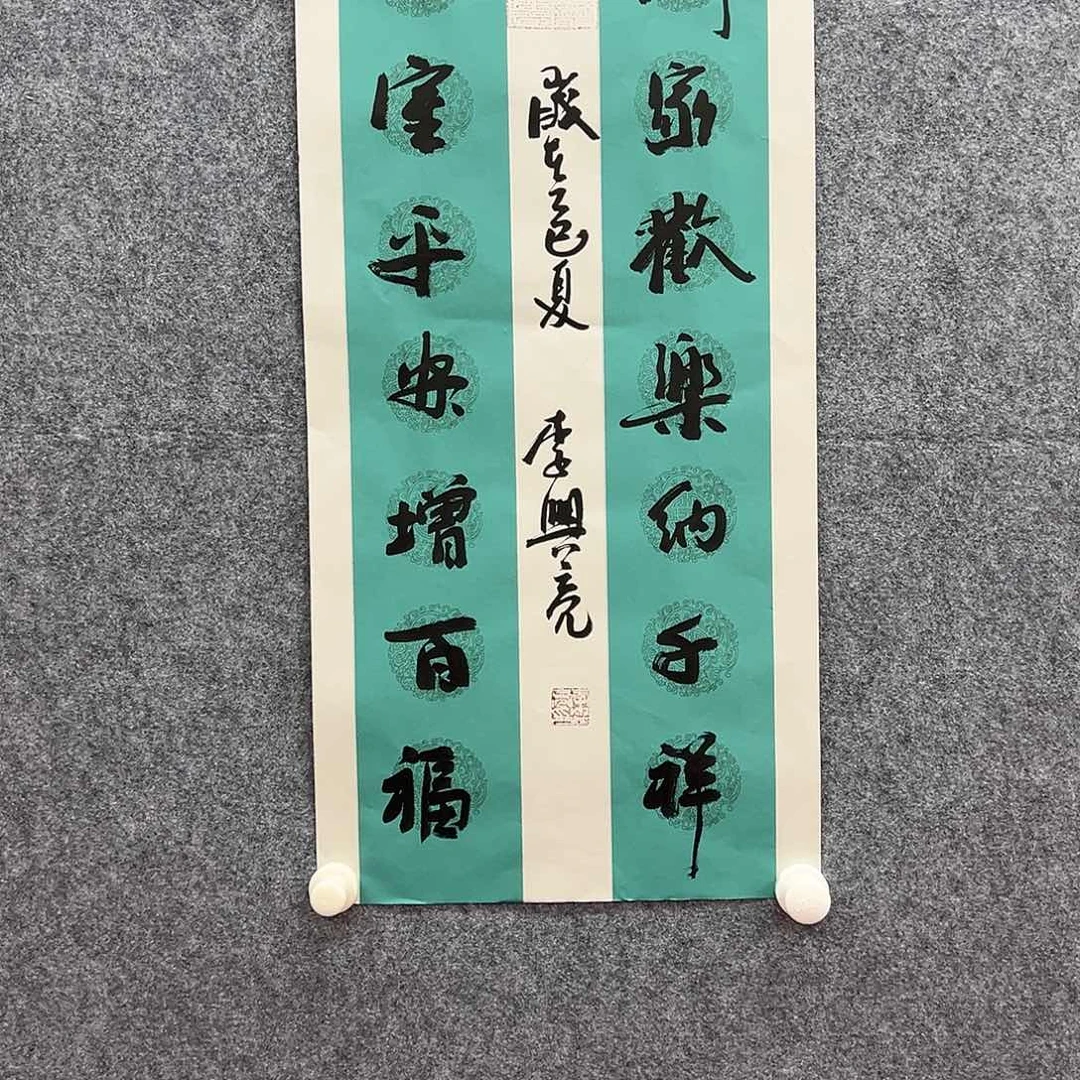 家歡樂納千祥
歲在乙巳夏 李興亮
室平安增百福